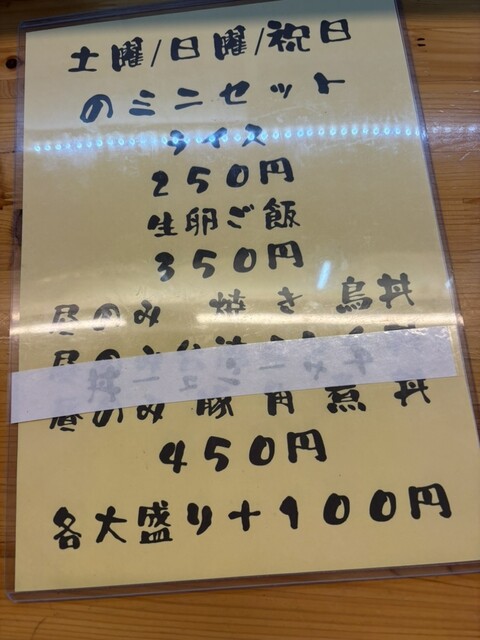 土曜/日曜/祝日
のミニセット
ライス
250円
生卵ご飯
350円
昼のみ 焼き鳥丼
昼のみ
昼のみ 豚角煮丼
450円
各大盛り+100円